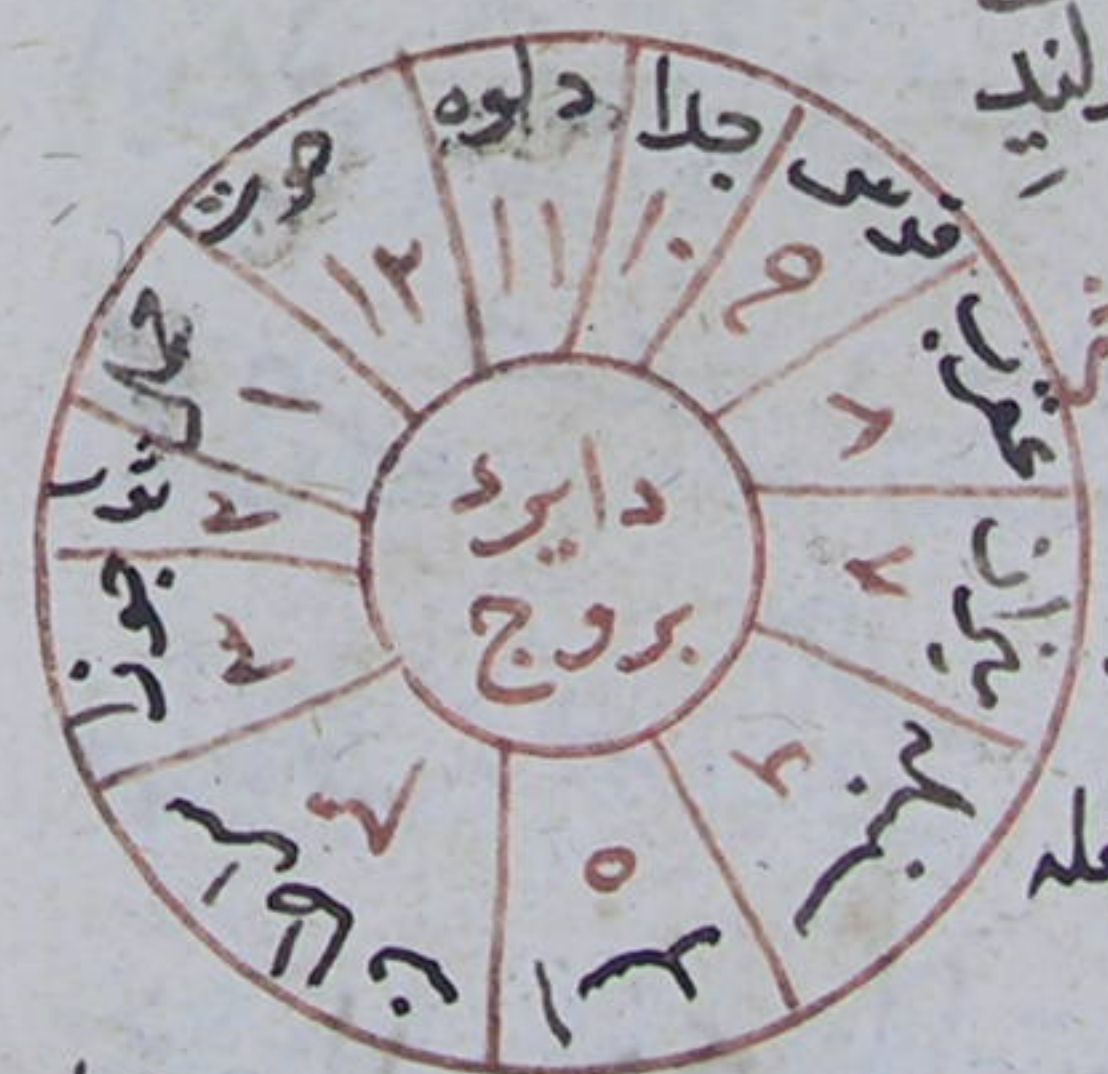 دایره
بروج
حمل
١
ثور
٢
جوزا
٣
٤
اسد
٥
سنبله
٦
میزان
٧
عقرب
٨
قوس
٩
جدا
١٠
دلوه
١١
حوت
١٢